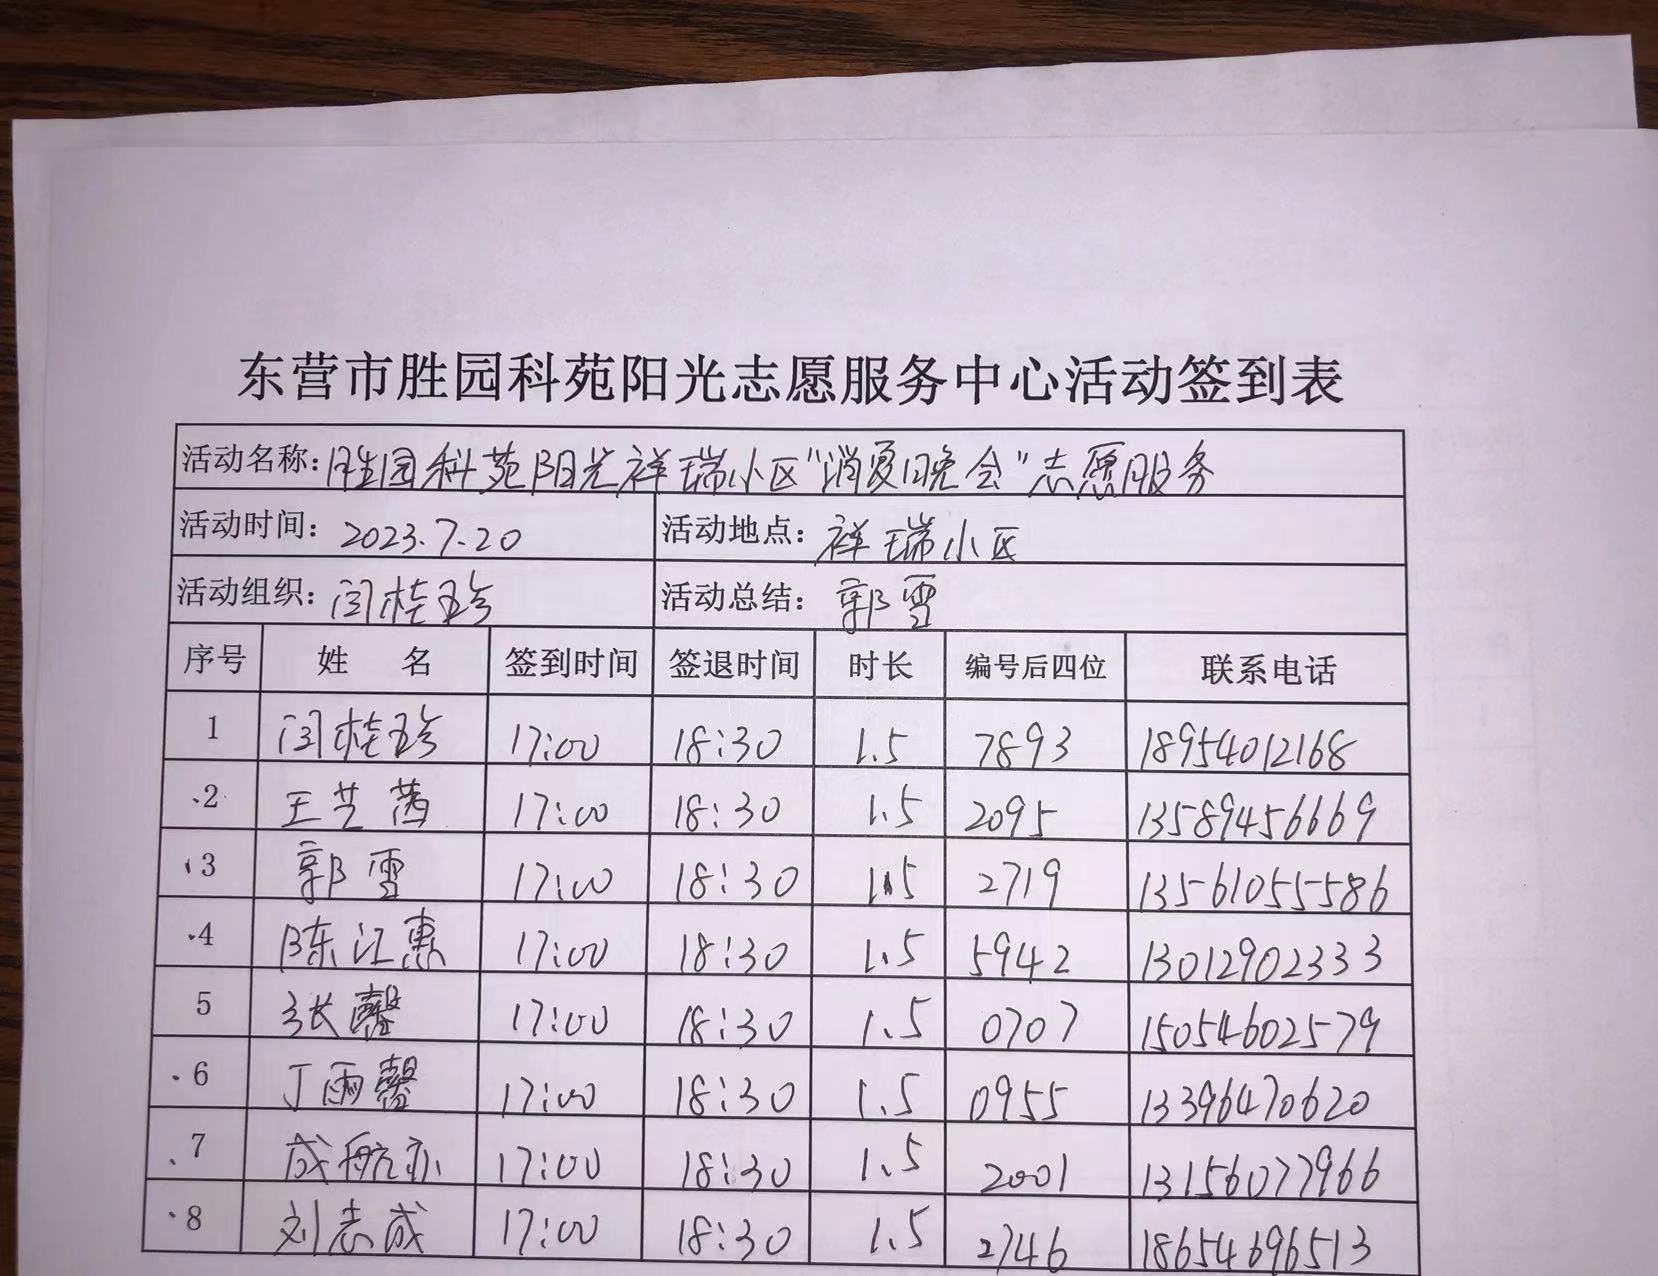 东营市胜园科苑阳光志愿服务中心活动签到表
活动名称:胜园科苑阳光祥瑞小区“消夏晚会”志愿服务
活动时间: 2023.7.20 活动地点: 祥瑞小区
活动组织: 闫桂珍 活动总结: 郭雪
序号 姓 名 签到时间 签退时间 时长 编号后四位 联系电话
1 闫桂珍 17:00 18:30 1.5 7893 18954012168
2 王芝茜 17:00 18:30 1.5 2095 13589456669
3 郭雪 17:00 18:30 1.5 2719 13561055586
4 陈江惠 17:00 18:30 1.5 5942 13012902333
5 张馨 17:00 18:30 1.5 0707 15054602579
6 丁雨馨 17:00 18:30 1.5 0955 13396470620
7 成航亦 17:00 18:30 1.5 2001 13156077966
8 刘志成 17:00 18:30 1.5 2746 18654696513